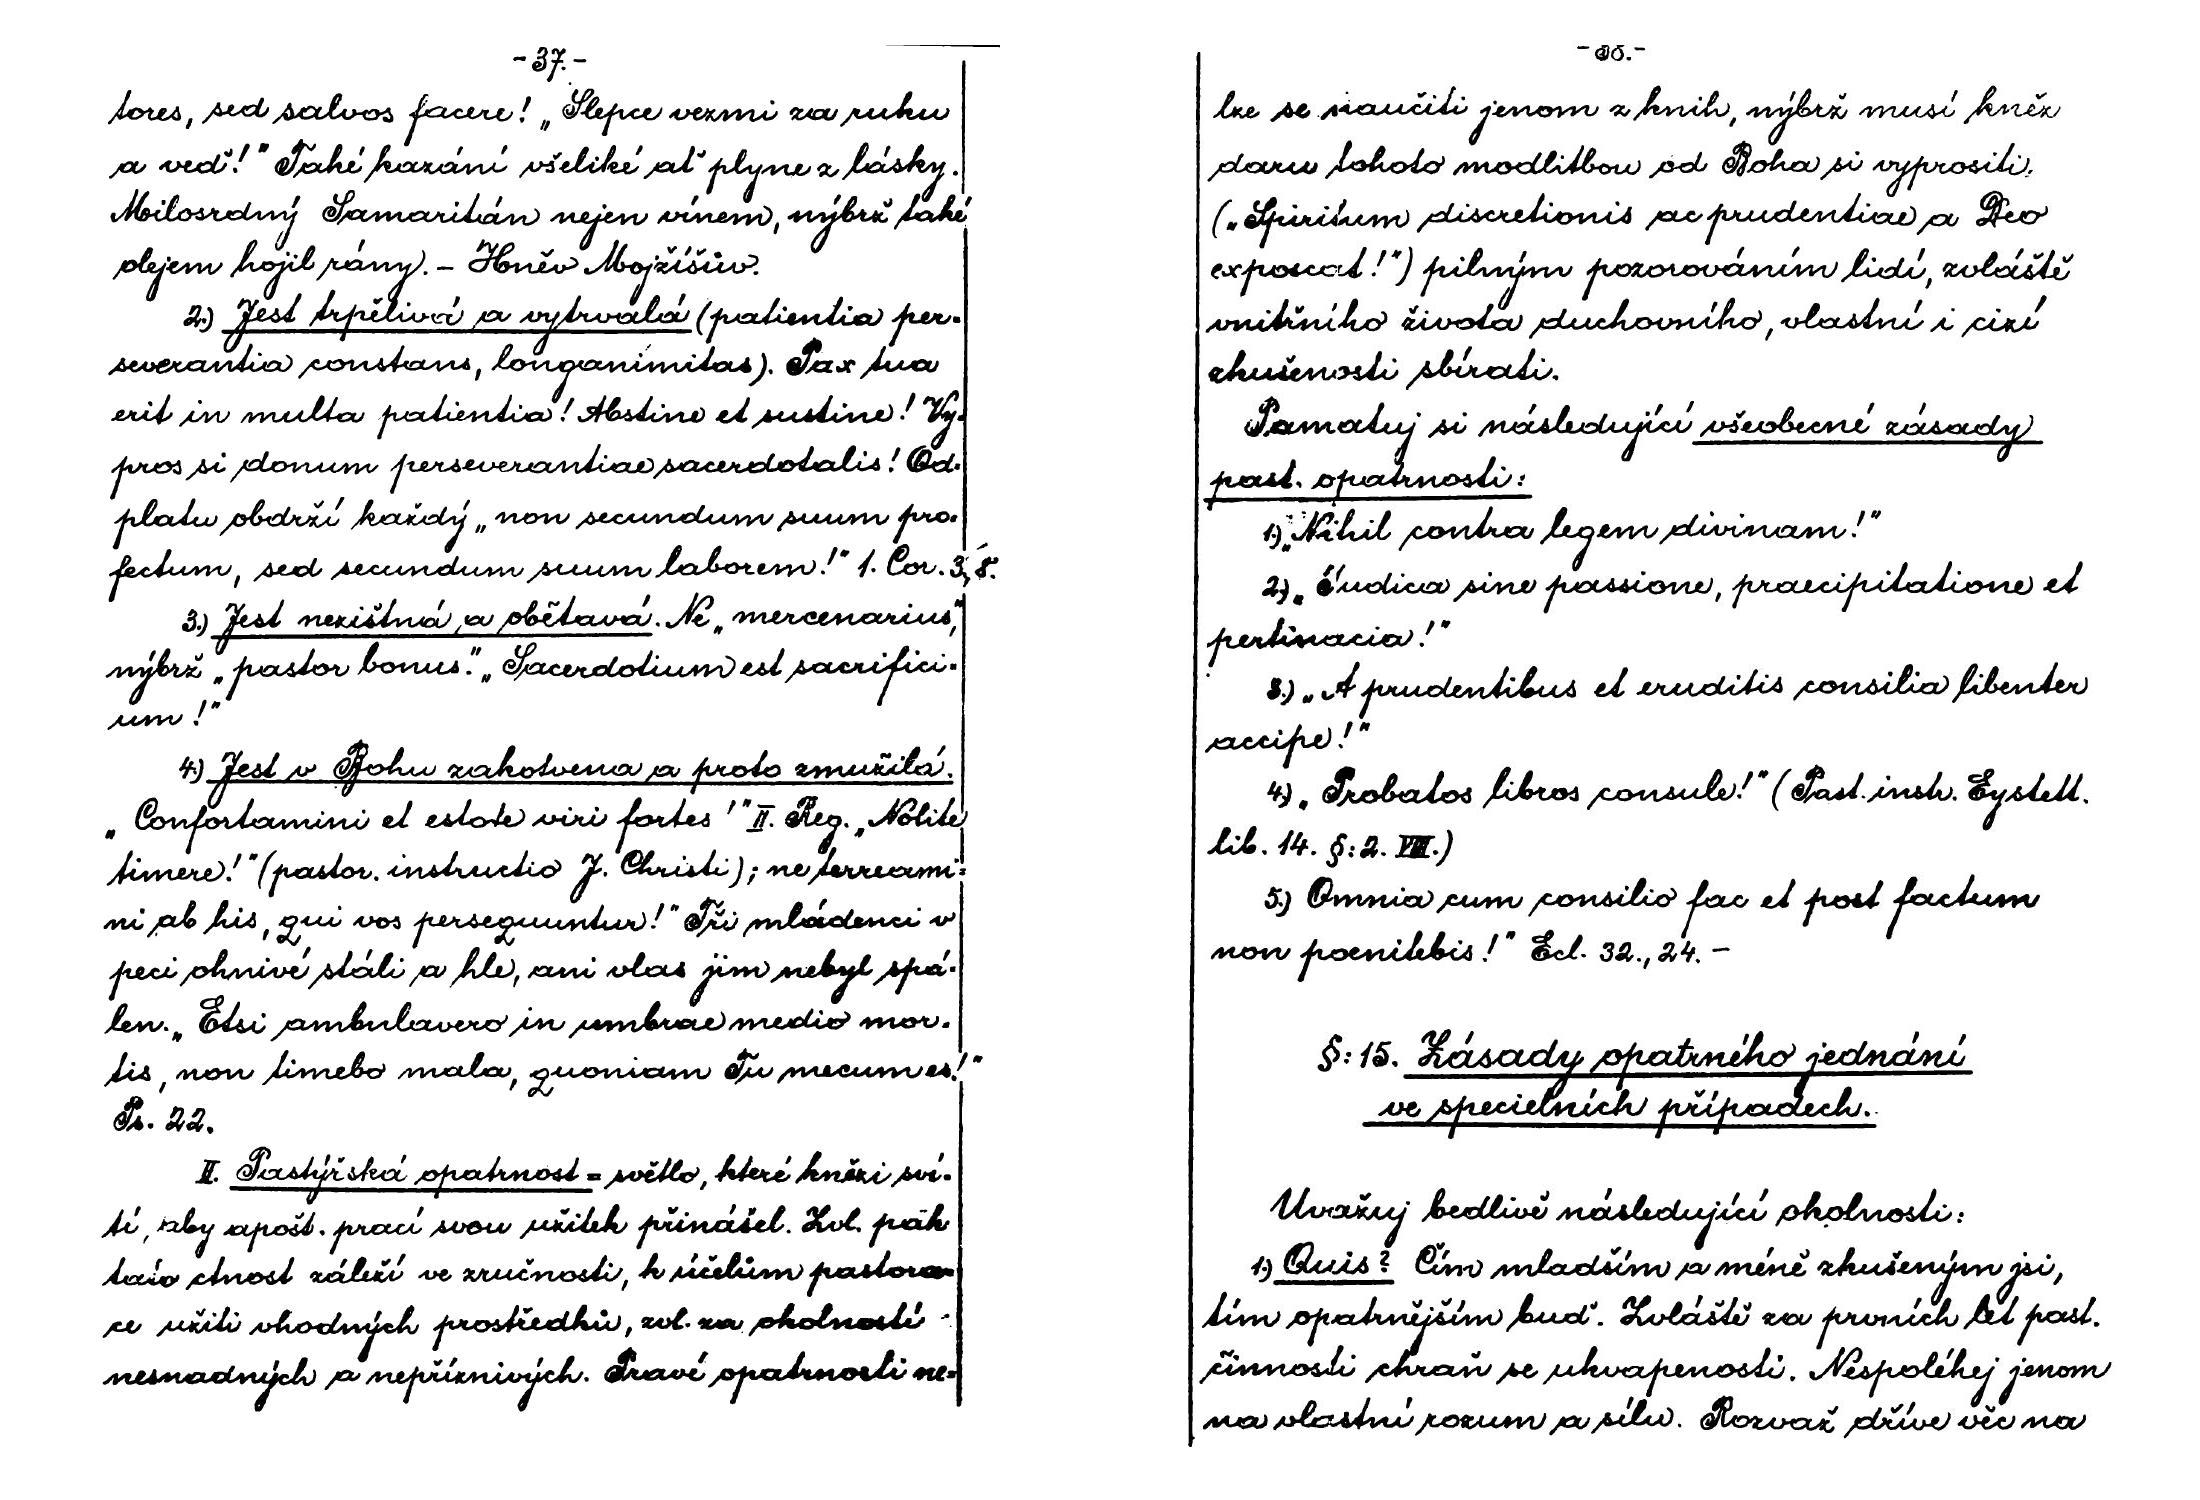 -37.-
tores, sed salvos facere! „Slepce vezmi za ruku
a veď!" Také kázání všeliké ať plyne z lásky.
Milosrdný Samaritán nejen vínem, nýbrž také
olejem hojil rány). – Hněv Mojžíšův.
2.) Jest trpělivá a vytrvalá (patientia per-
severantia constans, longanimitas). Pax tua
erit in multa patientia! Abstine et sustine! Vy-
pros si donum perseverantiae sacerdotalis! Od-
platu obdrží každý „non secundum suum pro-
fectum, sed secundum suum laborem!" 1. Cor. 3, 8.
3.) Jest nezištná a obětavá. Ne „mercenarius,"
nýbrž „pastor bonus." „Sacerdotium est sacrifici-
um!"
4.) Jest v Bohu zakotvena a proto zmužilá.
„Confortamini et estote viri fortes!" II. Reg. „Nolite
timere!" (pastor. instructio J. Christi); ne terreami-
ni ab his, qui vos persequuntur!" Tři mládenci v
peci ohnivé stáli a hle, ani vlas jim nebyl spá-
len. „Etsi ambulavero in umbrae medio mor-
tis, non timebo mala, quoniam Tu mecum es!"
Ps. 22.
II. Pastýřská opatrnost = světlo, které knězi sví-
tí, aby apošt. prací svou užitek přinášel. Zvl. pak
tato ctnost záleží ve zručnosti, k účelům pastora-
ce užiti vhodných prostředků, zvl. za okolností
nesnadných a nepříznivých. Pravé opatrnosti ne-
-38.-
lze se naučiti jenom z knih, nýbrž musí kněz
daru tohoto modlitbou od Boha si vyprositi.
(„Spiritum discretionis ac prudentiae a Deo
exposcat!") pilným pozorováním lidí, zvláště
vnitřního života duchovního, vlastní i cizí
zkušenosti sbírati.
Pamatuj si následující všeobecné zásady
past. opatrnosti:
1.) „Nihil contra legem divinam!"
2.) „Iudica sine passione, praecipitatione et
pertinacia!"
3.) „A prudentibus et eruditis consilia libenter
accipe!"
4.) „Probatos libros consule!" (Past. instr. Eystett.
lib. 14. §: 2. VIII.)
5.) Omnia cum consilio fac et post factum
non poenitebis!" Ecl. 32., 24. –
§: 15. Zásady opatrného jednání
ve specielních případech.
Uvažuj bedlivě následující okolnosti:
1.) Quis? Čím mladším a méně zkušeným jsi,
tím opatrnějším buď. Zvláště za prvních let past.
činnosti chraň se ukvapenosti. Nespoléhej jenom
na vlastní rozum a sílu. Rozvaž dříve věc na